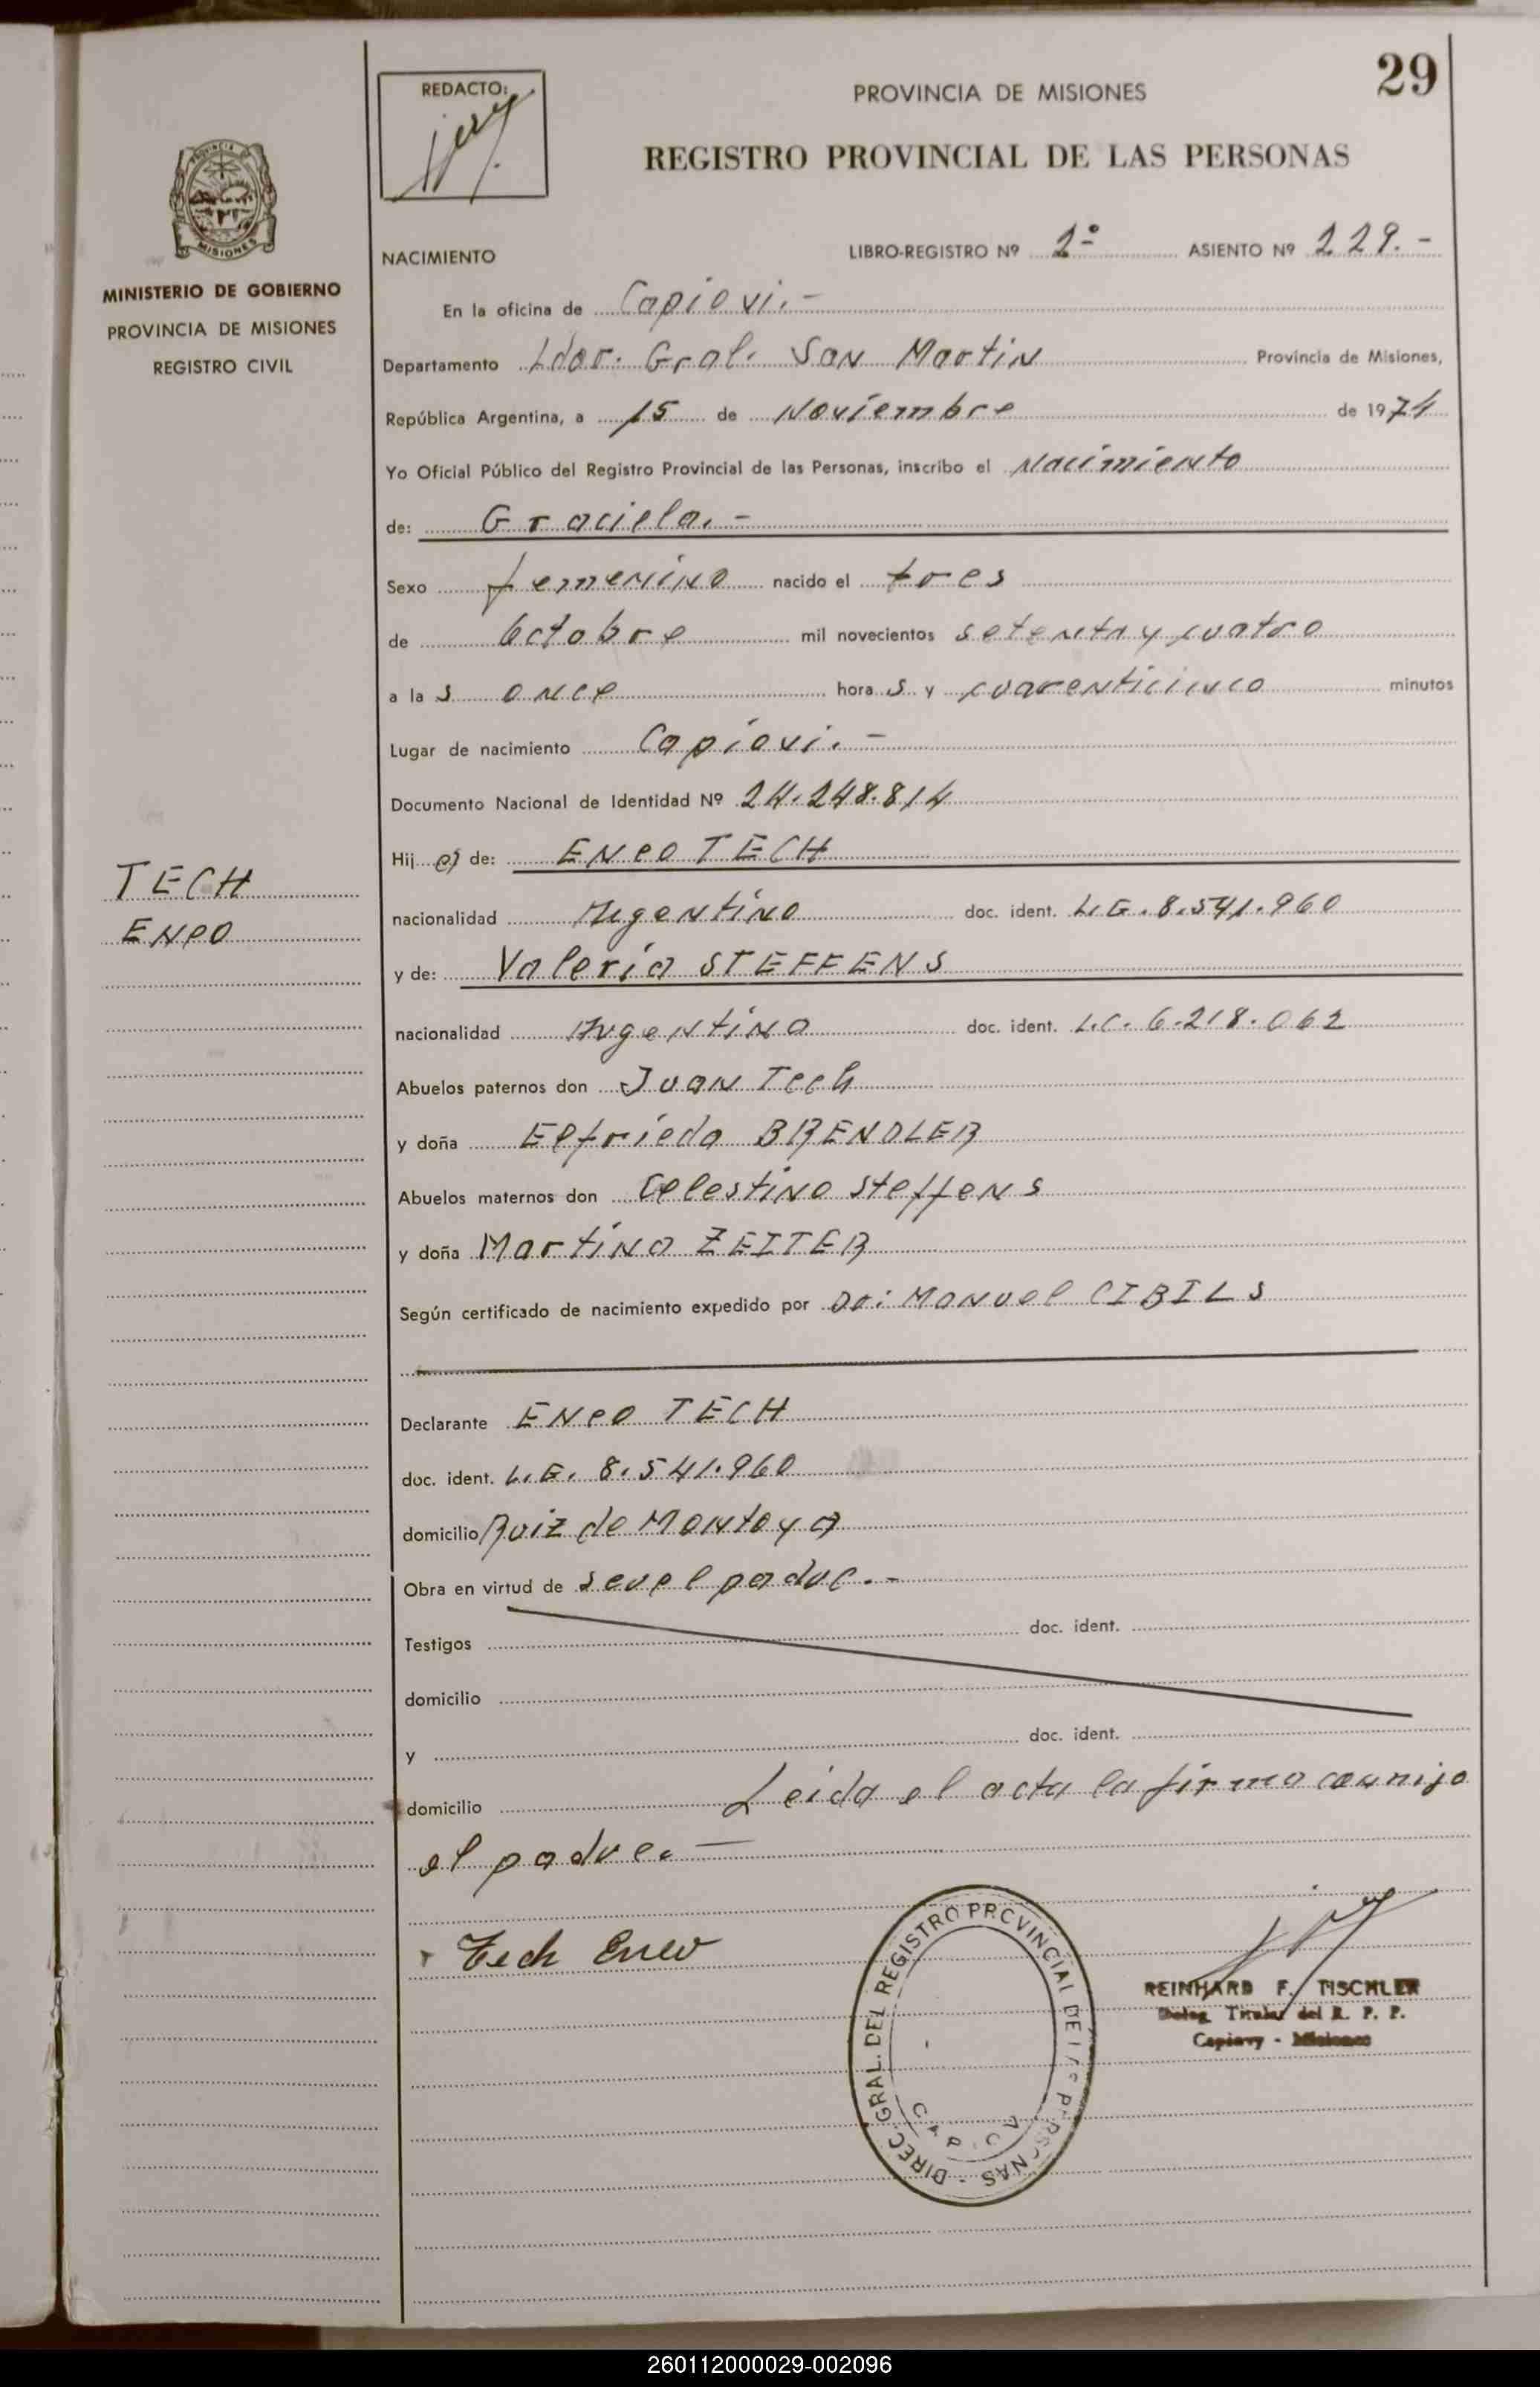 29
REDACTO:
PROVINCIA DE MISIONES
REGISTRO PROVINCIAL DE LAS PERSONAS
PROVINCIA DE
MISIONES
MINISTERIO DE GOBIERNO
PROVINCIA DE MISIONES
REGISTRO CIVIL
NACIMIENTO LIBRO-REGISTRO Nº 2º ASIENTO Nº 229.-
En la oficina de Capiovi.-
Departamento Ldor. Gral. San Martin Provincia de Misiones,
República Argentina, a 15 de Noviembre de 1974
Yo Oficial Público del Registro Provincial de las Personas, inscribo el Nacimiento
de: Graciela.-
Sexo femenino nacido el tres
de Octubre mil novecientos setenta y cuatro
a la s once hora s y cuarenticinco minutos
Lugar de nacimiento Capiovi.-
Documento Nacional de Identidad Nº 24.248.814
Hij a de: ENeo TECH
TECH
ENeo
nacionalidad Argentino doc. ident. L.E. 8.541.960
y de: Valeria STEFFENS
nacionalidad Argentina doc. ident. L.C. 6.218.062
Abuelos paternos don Juan Tech
y doña Elfrieda BRENDLER
Abuelos maternos don Celestino Steffens
y doña Martina ZEITER
Según certificado de nacimiento expedido por Dr: Manuel CIBILS
Declarante ENeo TECH
doc. ident. L.E. 8.541.960
domicilio Ruiz de Montoya
Obra en virtud de ser el padre.-
Testigos doc. ident.
domicilio
y doc. ident.
domicilio Leida el acta la firma conmigo
el padre.-
Tech Eneo
DIREC. GRAL. DEL REGISTRO PROVINCIAL DE LAS PERSONAS -
REINHARD F. TISCHLER
Deleg. Titular del R. P. P.
Capiovy - Misiones
260112000029-002096